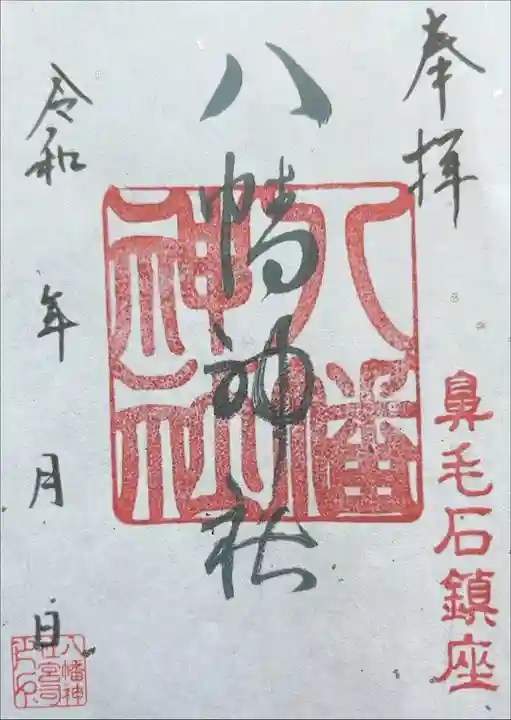 奉拝
鼻毛石鎮座
八幡神社
八幡神社
令和 年 月 日
八幡神
社宮司
之印